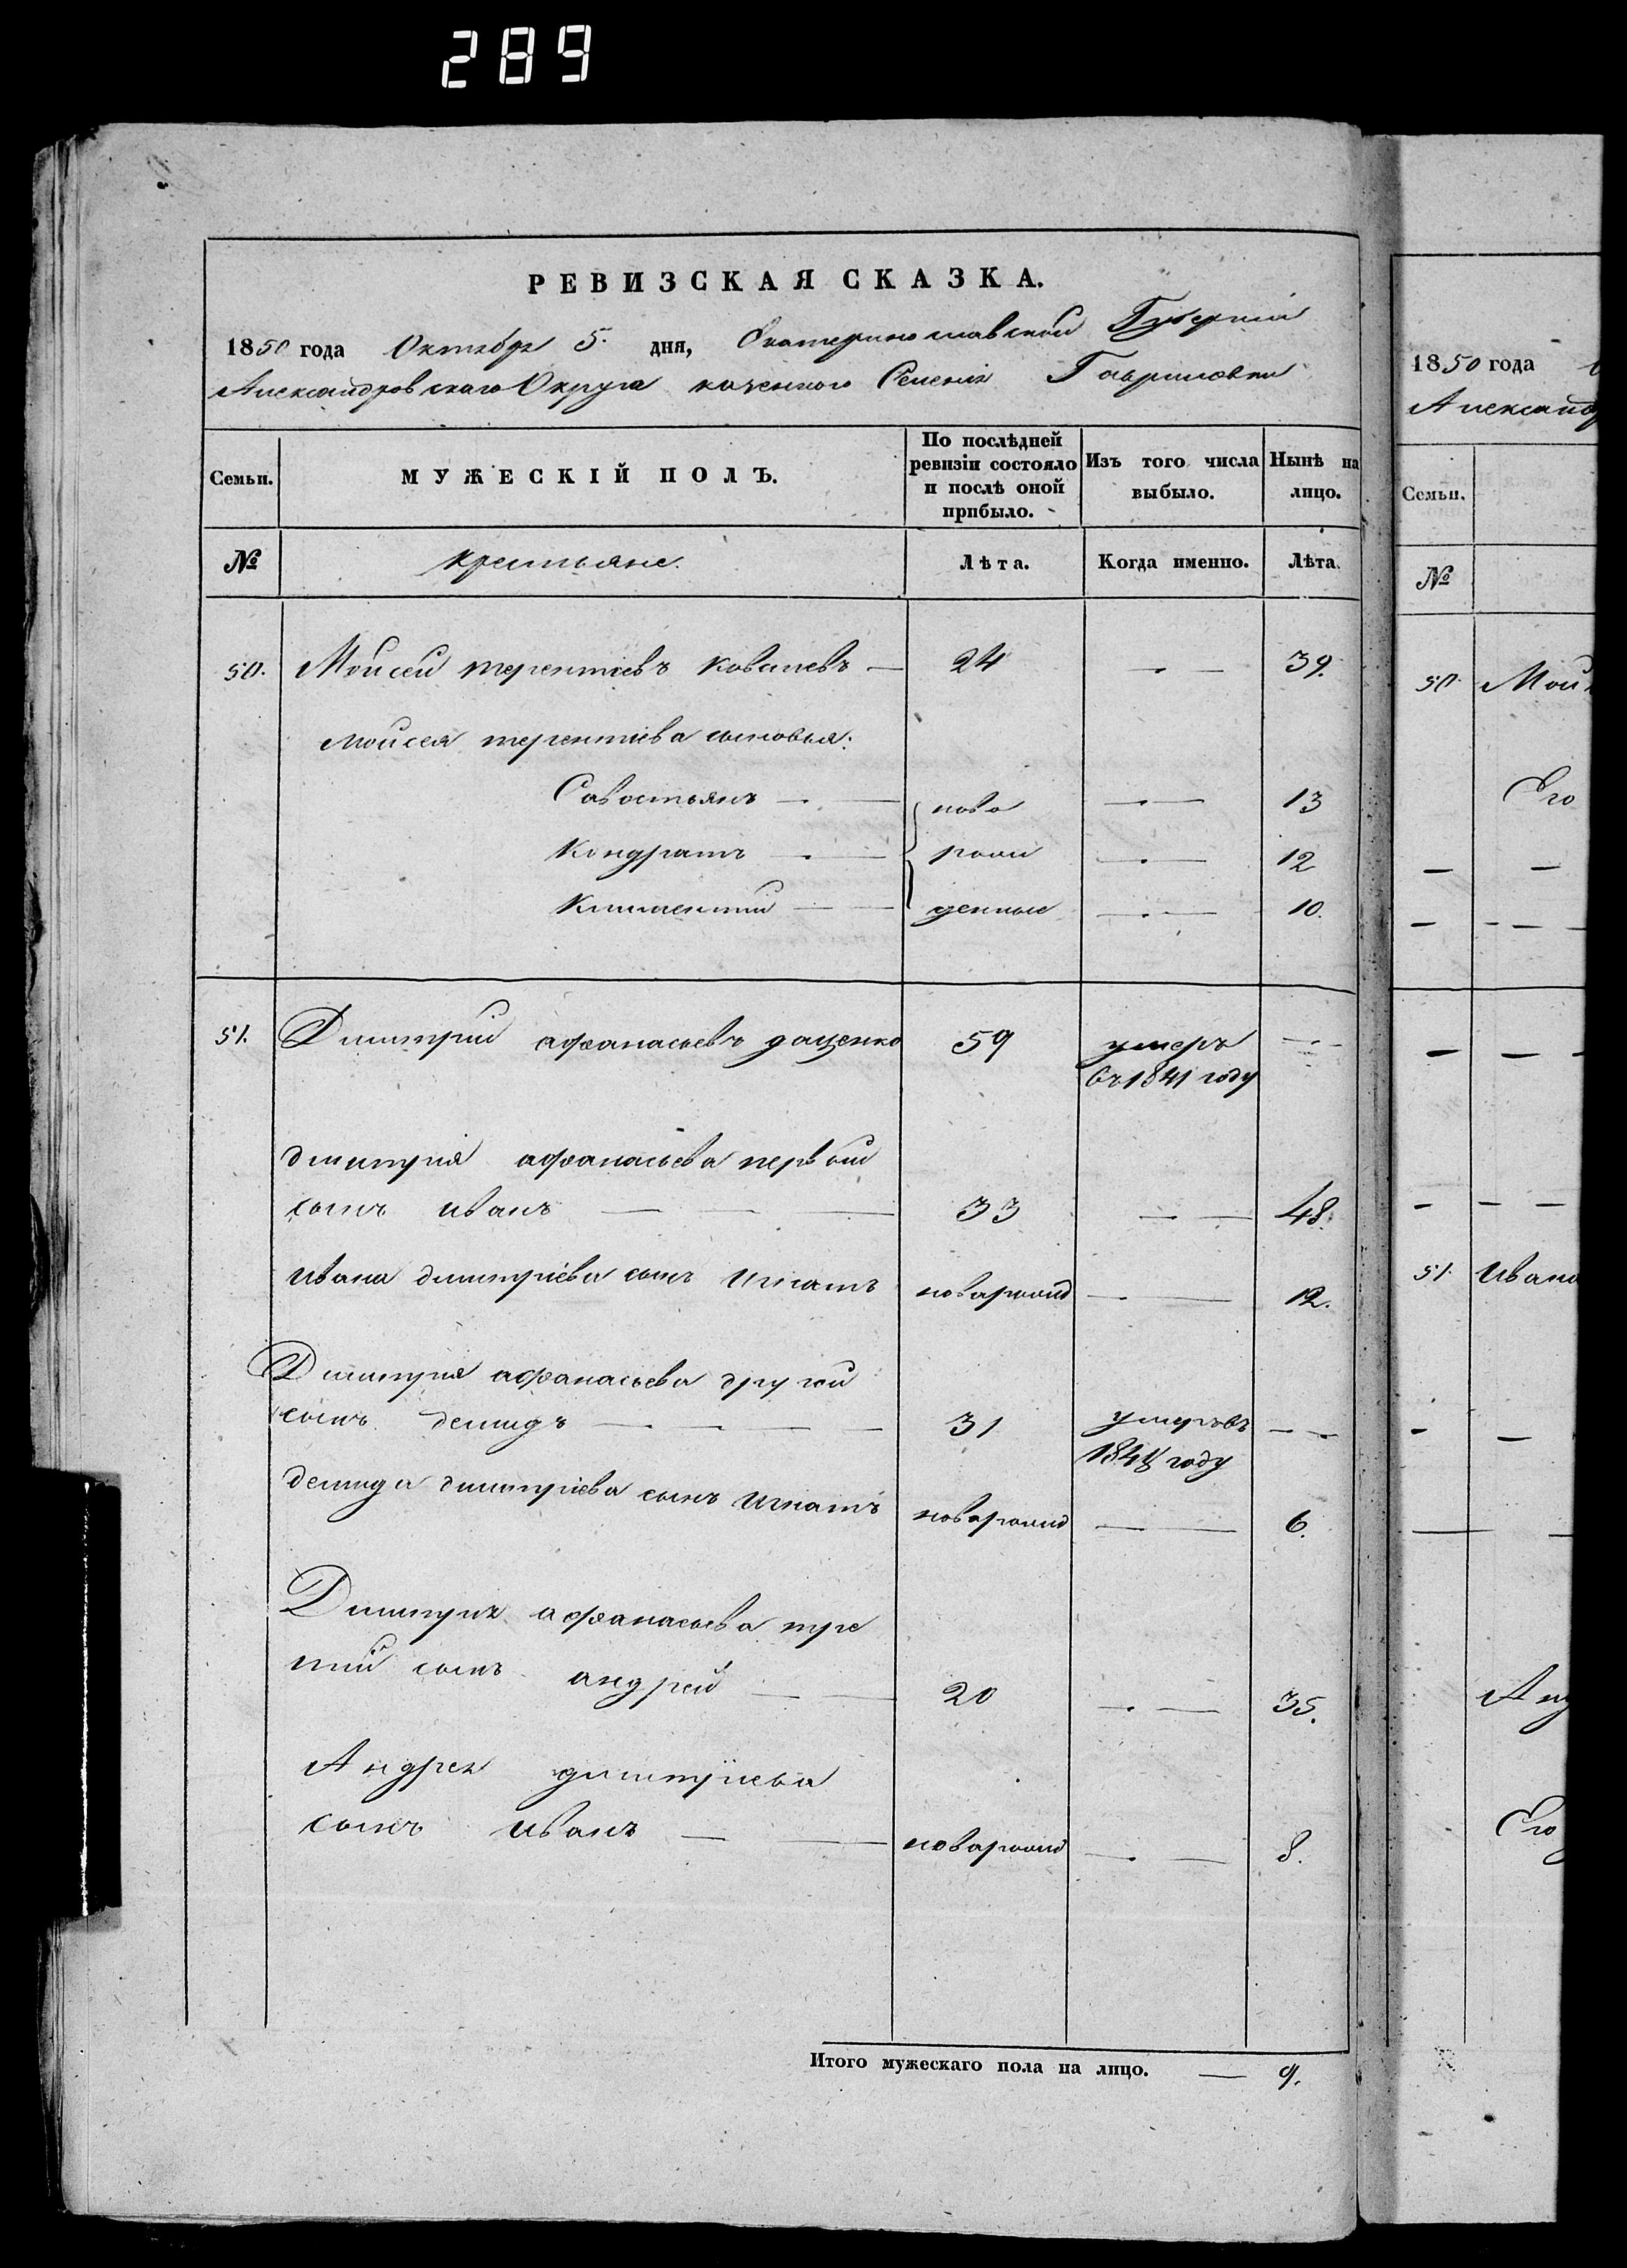 289
РЕВИЗСКАЯ СКАЗКА.
1850 года Октября 5. дня, Екатеринославской Губернии
Александровскаго Округа казенного Селения Гавриловки
Семьи. МУЖЕСКІЙ ПОЛЪ. По послѣдней ревизіи состояло и послѣ оной прибыло. Изъ того числа выбыло. Нынѣ на лицо.
№ крестьяне. Лѣта. Когда именно. Лѣта.
50. Моисей терентіевъ Ковалевъ — 24 — — 39.
Моисея терентіева сыновья:
Савостьянъ — — ново — — 13
Кондратъ — — рож — — 12
Климентий — — денные — — 10.
51. Дмитрий афанасьевъ даценко 59 умеръ — —
въ 1841 году
дмитрия афанасьева первый
сынъ иванъ — — — 33 — — 48.
ивана дмитріева сынъ Игнатъ новарожд — — 12.
Дмитрия афанасьева другой
сынъ демидъ — — — — 31 умеръ въ — —
1844 году
демида дмитріева сынъ игнатъ новарожд — — 6.
Дмитрия афанасьева тре
тий сынъ андрей — — 20 — — 35.
Андрея дмитріева
сынъ иванъ — — новарожд — — 8.
Итого мужескаго пола на лицо. — 9.
1850 года
Александр
Семьи.
№
50. Мои
Его
51. Ивана
Анд
Его